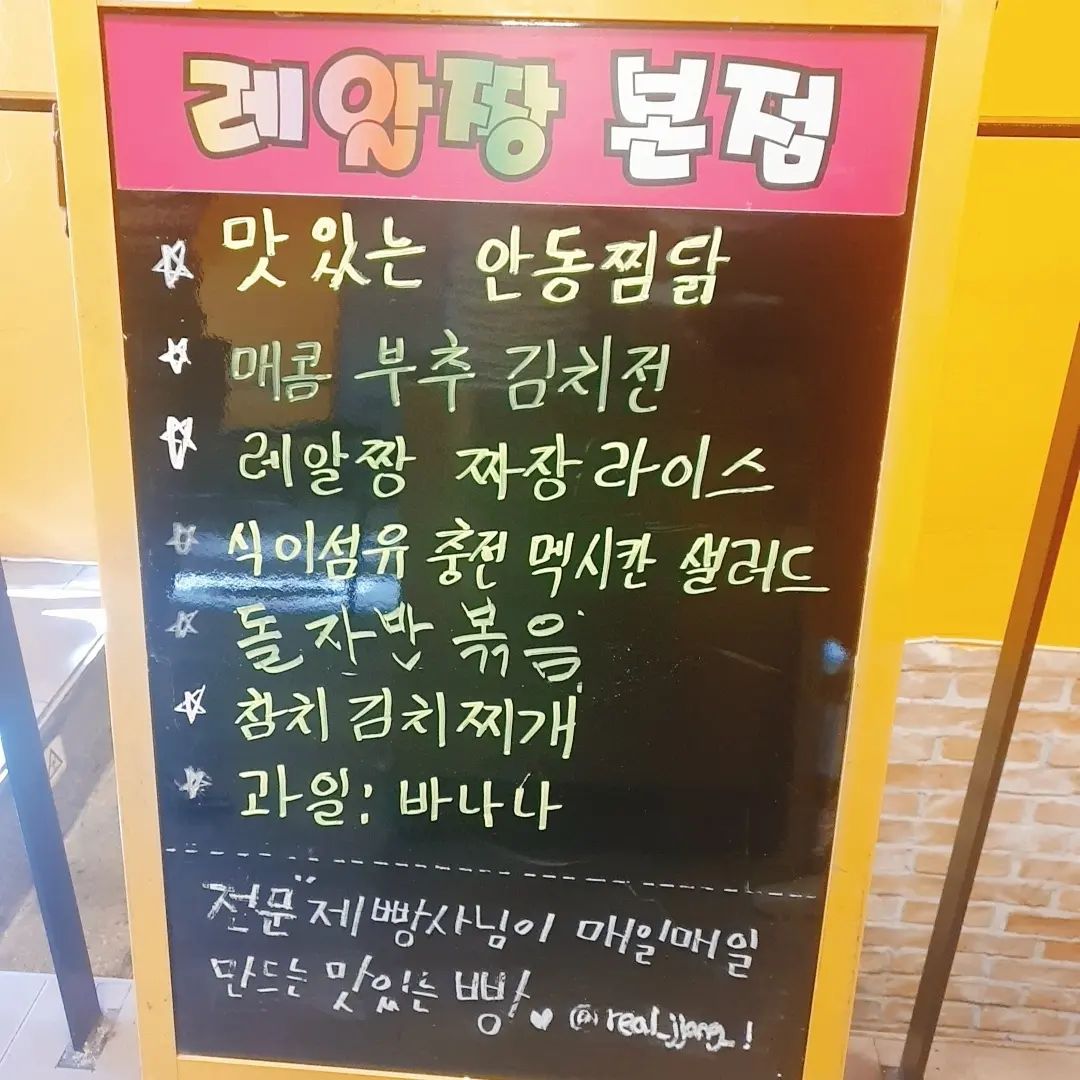 레알짱 본점
☆ 맛있는 안동찜닭
☆ 매콤 부추 김치전
☆ 레알짱 짜장라이스
☆ 식이섬유 충전 멕시칸 샐러드
☆ 돌자반 볶음
☆ 참치김치찌개
☆ 과일: 바나나
전문 제빵사님이 매일매일
만드는 맛있는 빵 ♥ @real_jjang_!